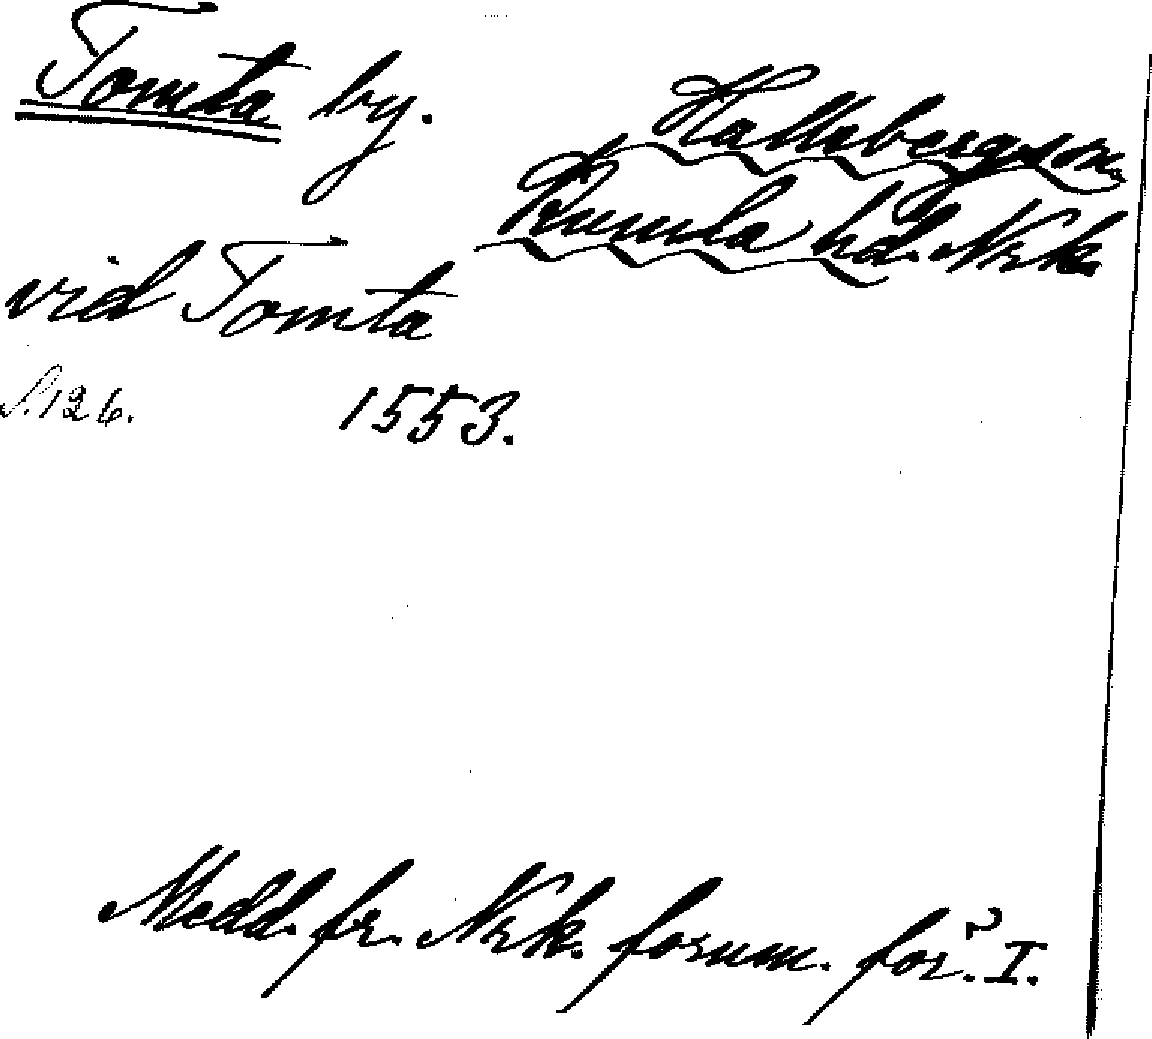 Tomta by.
Hallsbergs sn.
Kumla hd. Nrk.
vid Tomta
s. 126.
1553.
Medd. fr. Nrk. fornm. för. I.